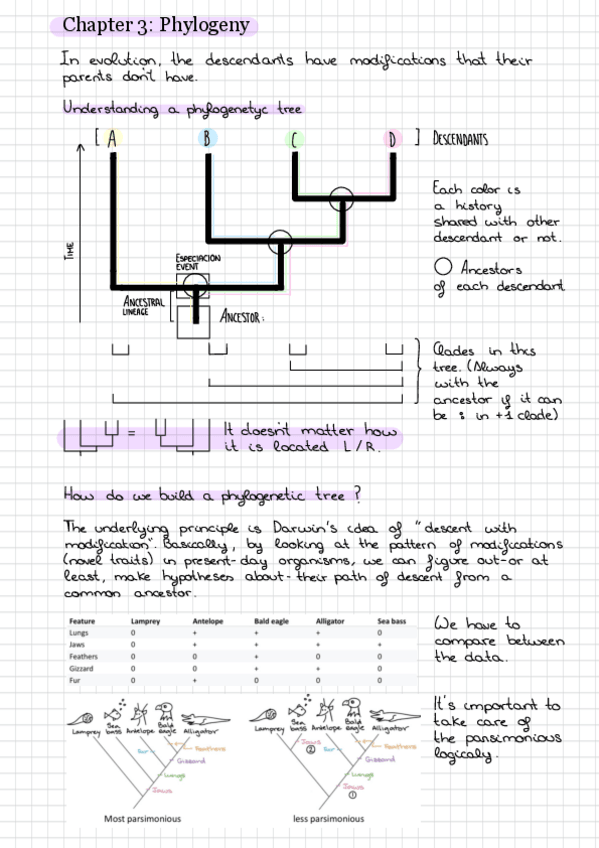 Chapter 3: Phylogeny
In evolution, the descendants have modifications that their
parents don't have.
Understanding a phylogenetyc tree
[ A B C D ] DESCENDANTS
TIME
Each color is
a history
shared with other
descendant or not.
ESPECIACION
EVENT
Ancestors
of each descendant
ANCESTRAL
LINEAGE
ANCESTOR:
Clades in this
tree. (Always
with the
ancestor if it can
be : in +1 clade)
=
It doesn't matter how
it is located L/R.
How do we build a phylogenetic tree?
The underlying principle is Darwin's idea of "descent with
modification". Basically, by looking at the pattern of modifications
(novel traits) in present-day organisms, we can figure out-or at
least, make hypotheses about-their path of descent from a
common ancestor.
Feature Lamprey Antelope Bald eagle Alligator Sea bass
Lungs 0 + + + 0
Jaws 0 + + + +
Feathers 0 0 + 0 0
Gizzard 0 0 + + 0
Fur 0 + 0 0 0
We have to
compare between
the data.
It's important to
take care of
the parsimonious
logicaly.
Lamprey Sea bass Antelope Bald eagle Alligator
Fur
Feathers
Gizzard
Lungs
Jaws
Most parsimonious
Lamprey Sea bass Antelope Bald eagle Alligator
Jaws
②
Fur
Feathers
Gizzard
Lungs
Jaws
①
less parsimonious